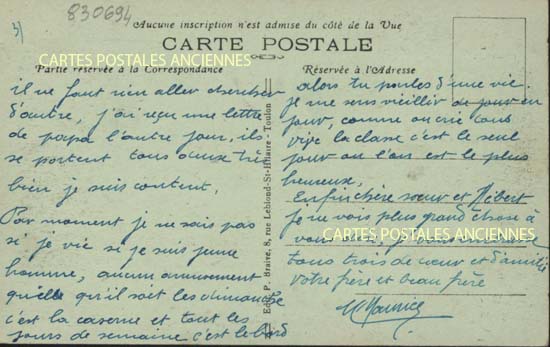 830694
3)
Aucune inscription n'est admise du côté de la Vue
CARTE POSTALE
CARTES POSTALES ANCIENNES
Partie réservée à la Correspondance
il ne faut rien aller chercher
d'autre, j'ai reçu une lettre
de papa l'autre jour, ils
se portent tous deux très
bien je suis content,
Par moment je ne sais pas
si je vis si je suis jeune
homme, aucun amusement
quelle qu'il soit les dimanche
c'est la caserne et tout les
jours de semaine c'est le bord
Edit. P. Braive, 8, rue Leblond-St-Hilaire - Toulon
Réservée à l'Adresse
alors tu parles d'une vie.
je me sens vieillir de jour en
jour, comme on crie tous
vive la classe c'est le seul
jour ou l'on est le plus
heureux,
Enfin chère sœur et
je ne vois plus grand chose à
vous
CARTES POSTALES ANCIENNES
tous trois de cœur et d'amitié
votre frère et beau frère
Maurice